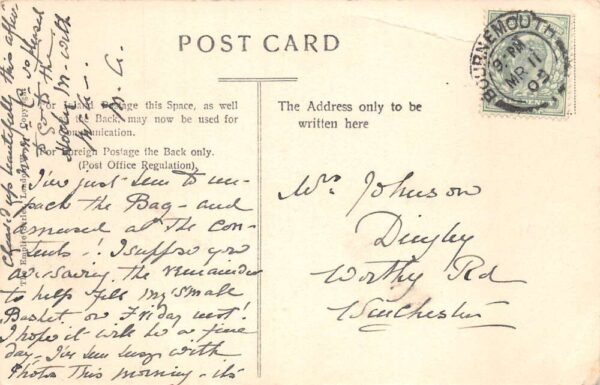 POST CARD
For Inland Postage this Space, as well
the Back, may now be used for
Communication.
For Foreign Postage the Back only.
(Post Office Regulation).
The Address only to be
written here
BOURNEMOUTH
9 PM
MR 11
09
Mrs Johnson
Dingley
Worthy Rd
Winchester
I've just been to un-
pack the Bag - and
amused at the con-
tents -! I suppose you
are saving the remainder
to help fill my small
Basket on Friday next!
I hope it will be a fine
day - I've been busy with
Photos this morning - it's
Cleared up beautifully this after
noon so pleased
to
with
The Empire Series London
Copyright